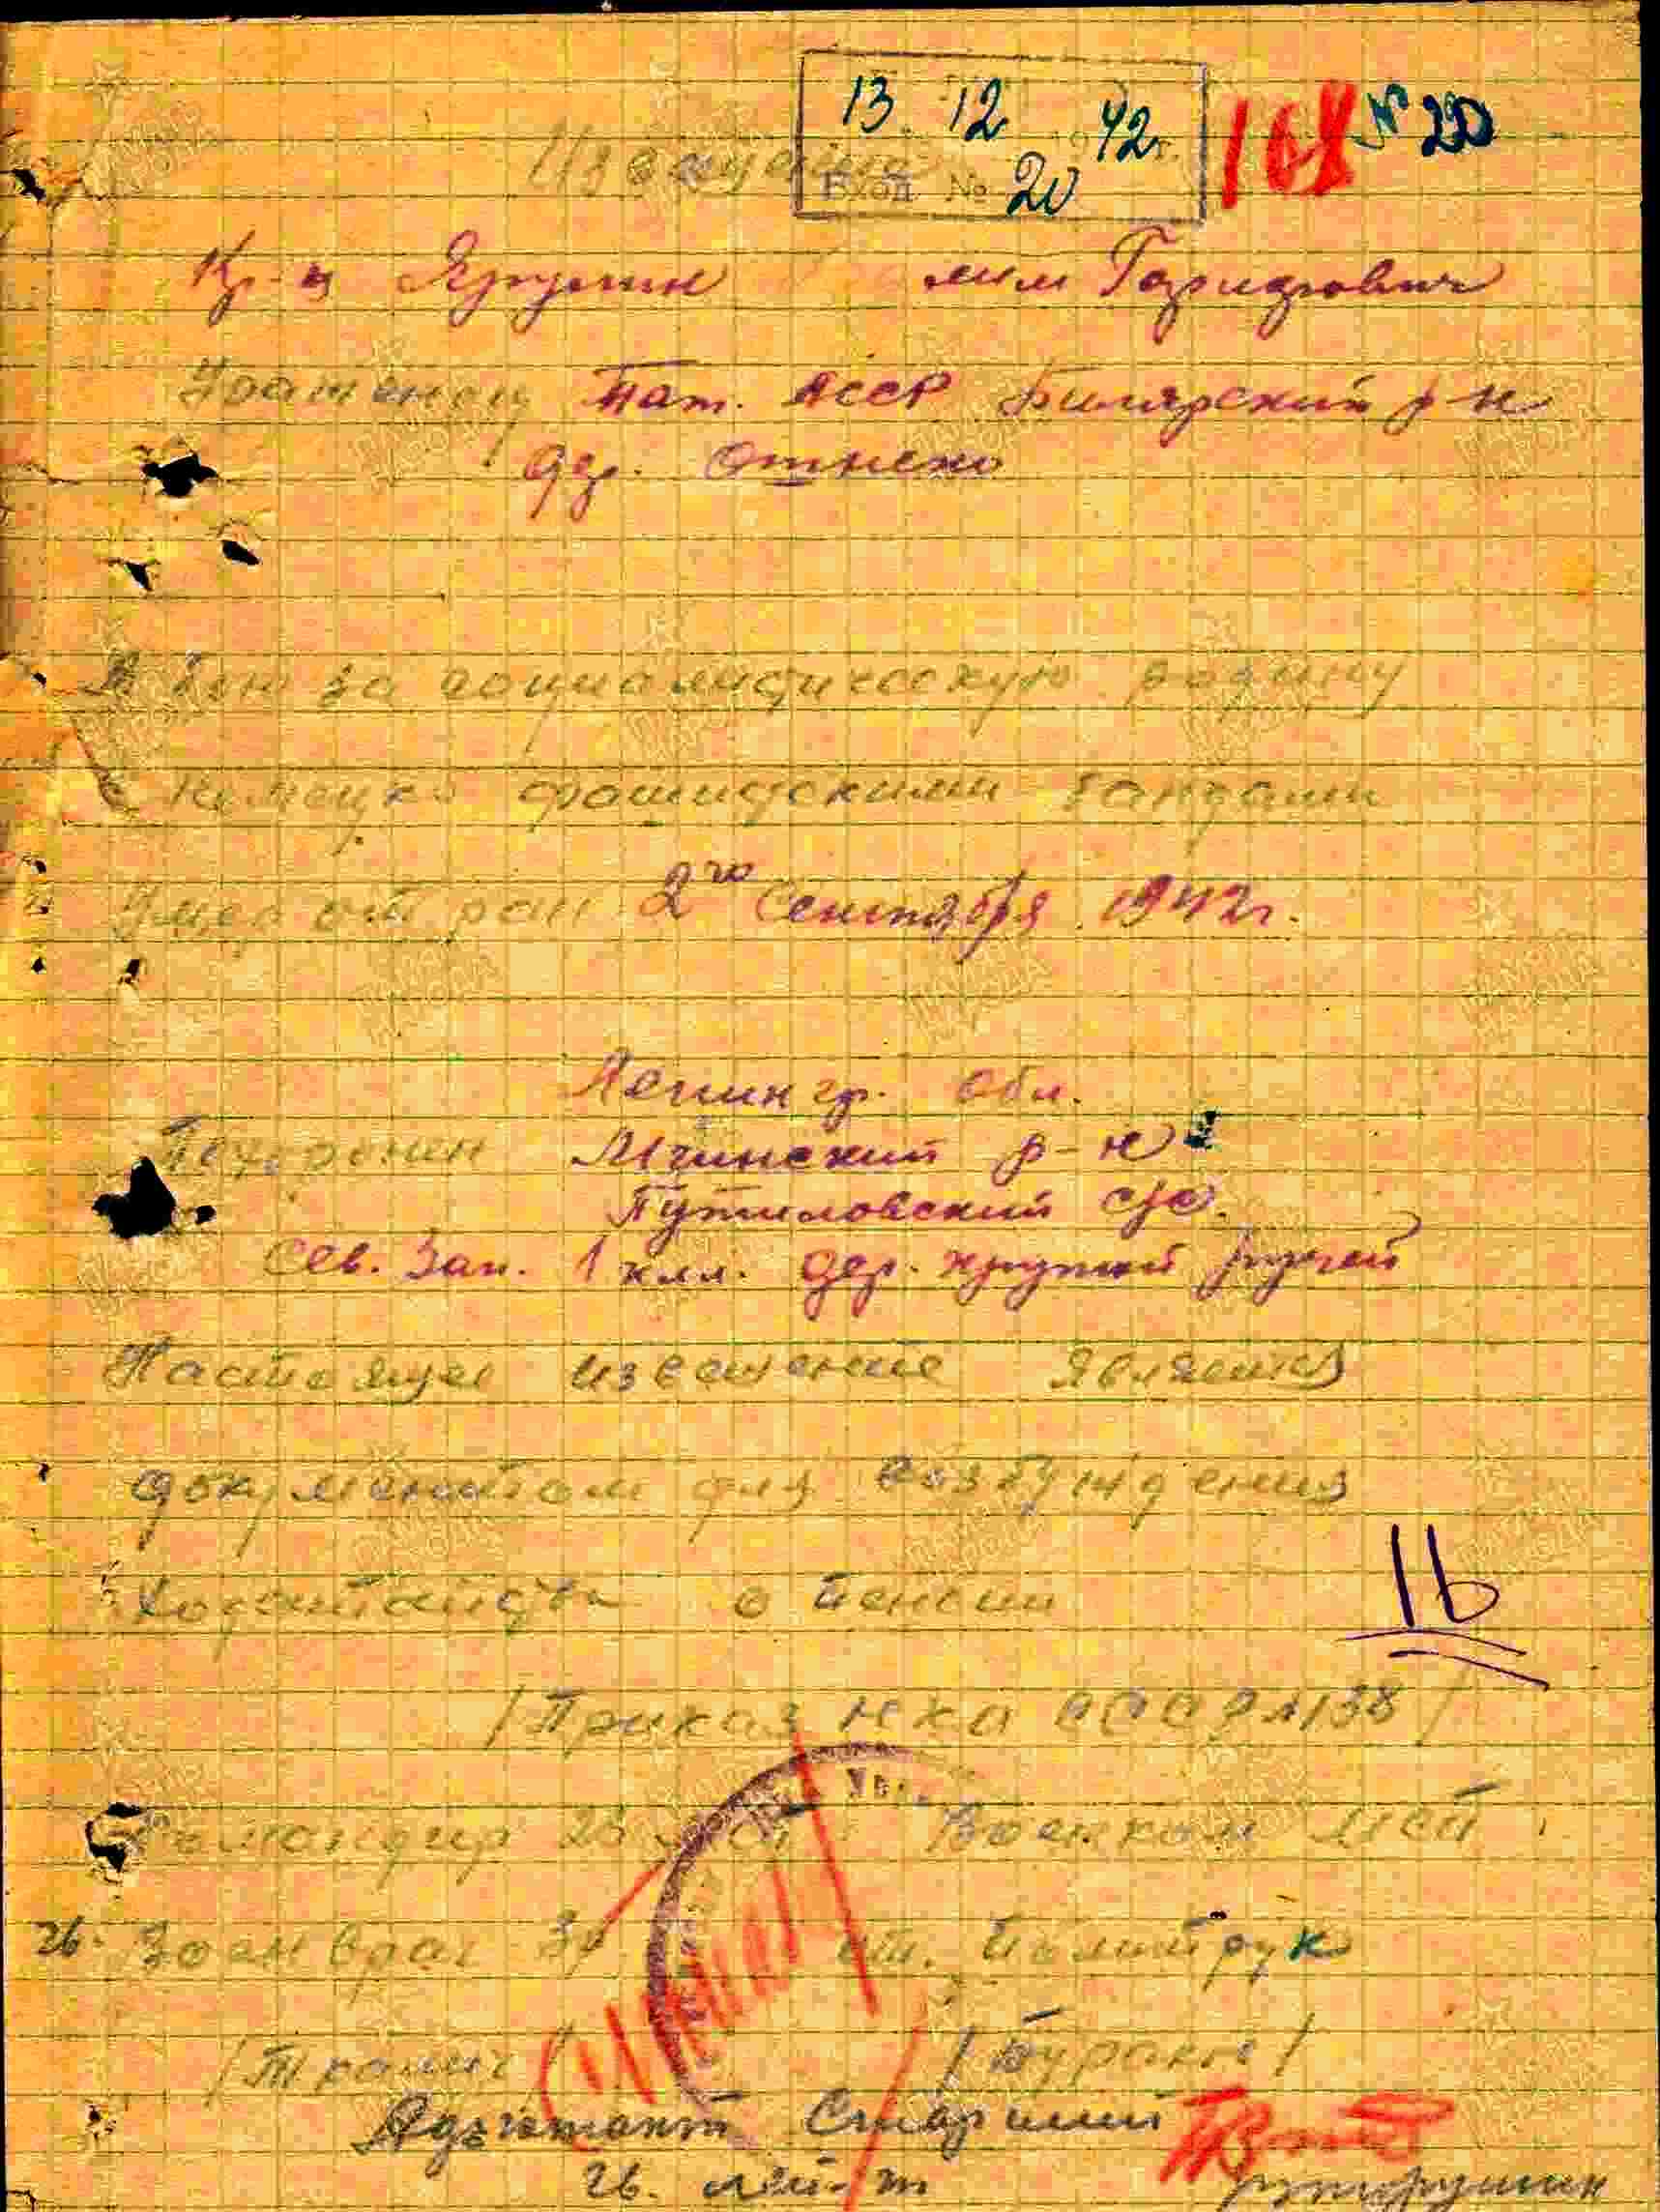 13 12 42 г.
Вход № 20
168 № 20
Извещение
Кр-ц Ярулин лим
Уроженец Тат. АССР Билярский р-н
дер.
В бою за социалистическую родину
с немецко фашискими бандами
Умер от ран 2го Сентября 1942г.
Ленингр. обл.
Похоронен Мгинский р-н
Путиловский с/с.
Сев. Зап. 1 клм. дер. круглый ручей
Настоящее извещение является
документом для возбуждения
ходатайства о пенсии
16
/Приказ НКО СССР №138/
Командир Военком мсп
Военврач 3р ст. политрук
Адъютант Старший
лей-т